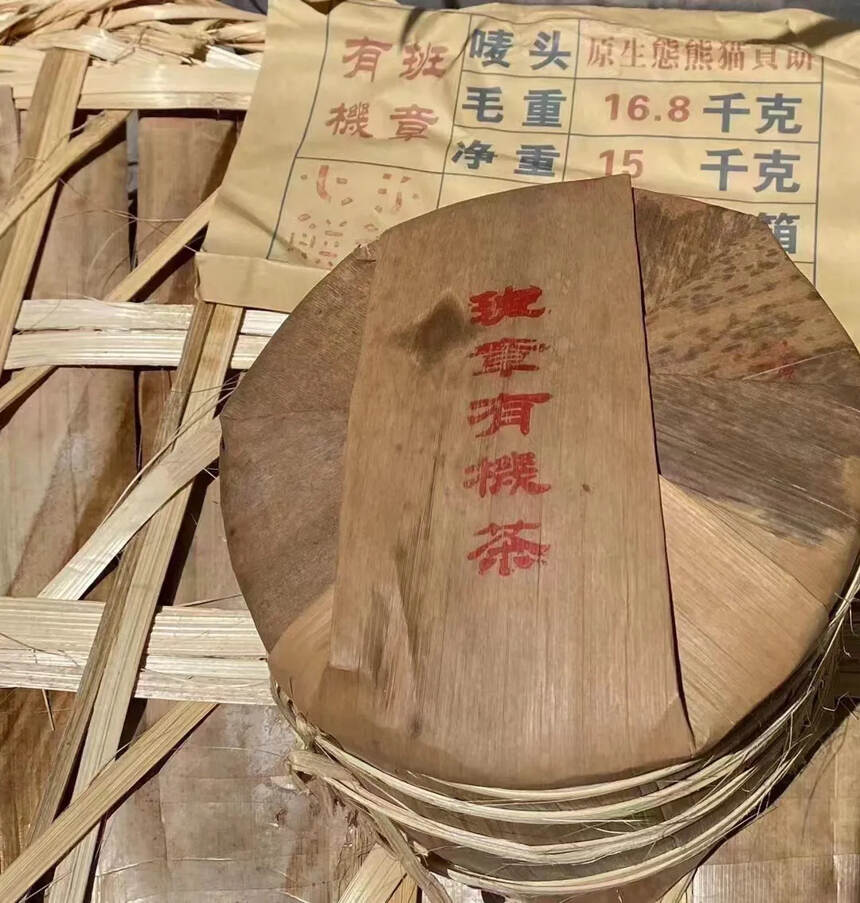 班章
有機
唛头 原生態熊猫貢餅
毛重 16.8 千克
净重 15 千克
箱
班章有機茶